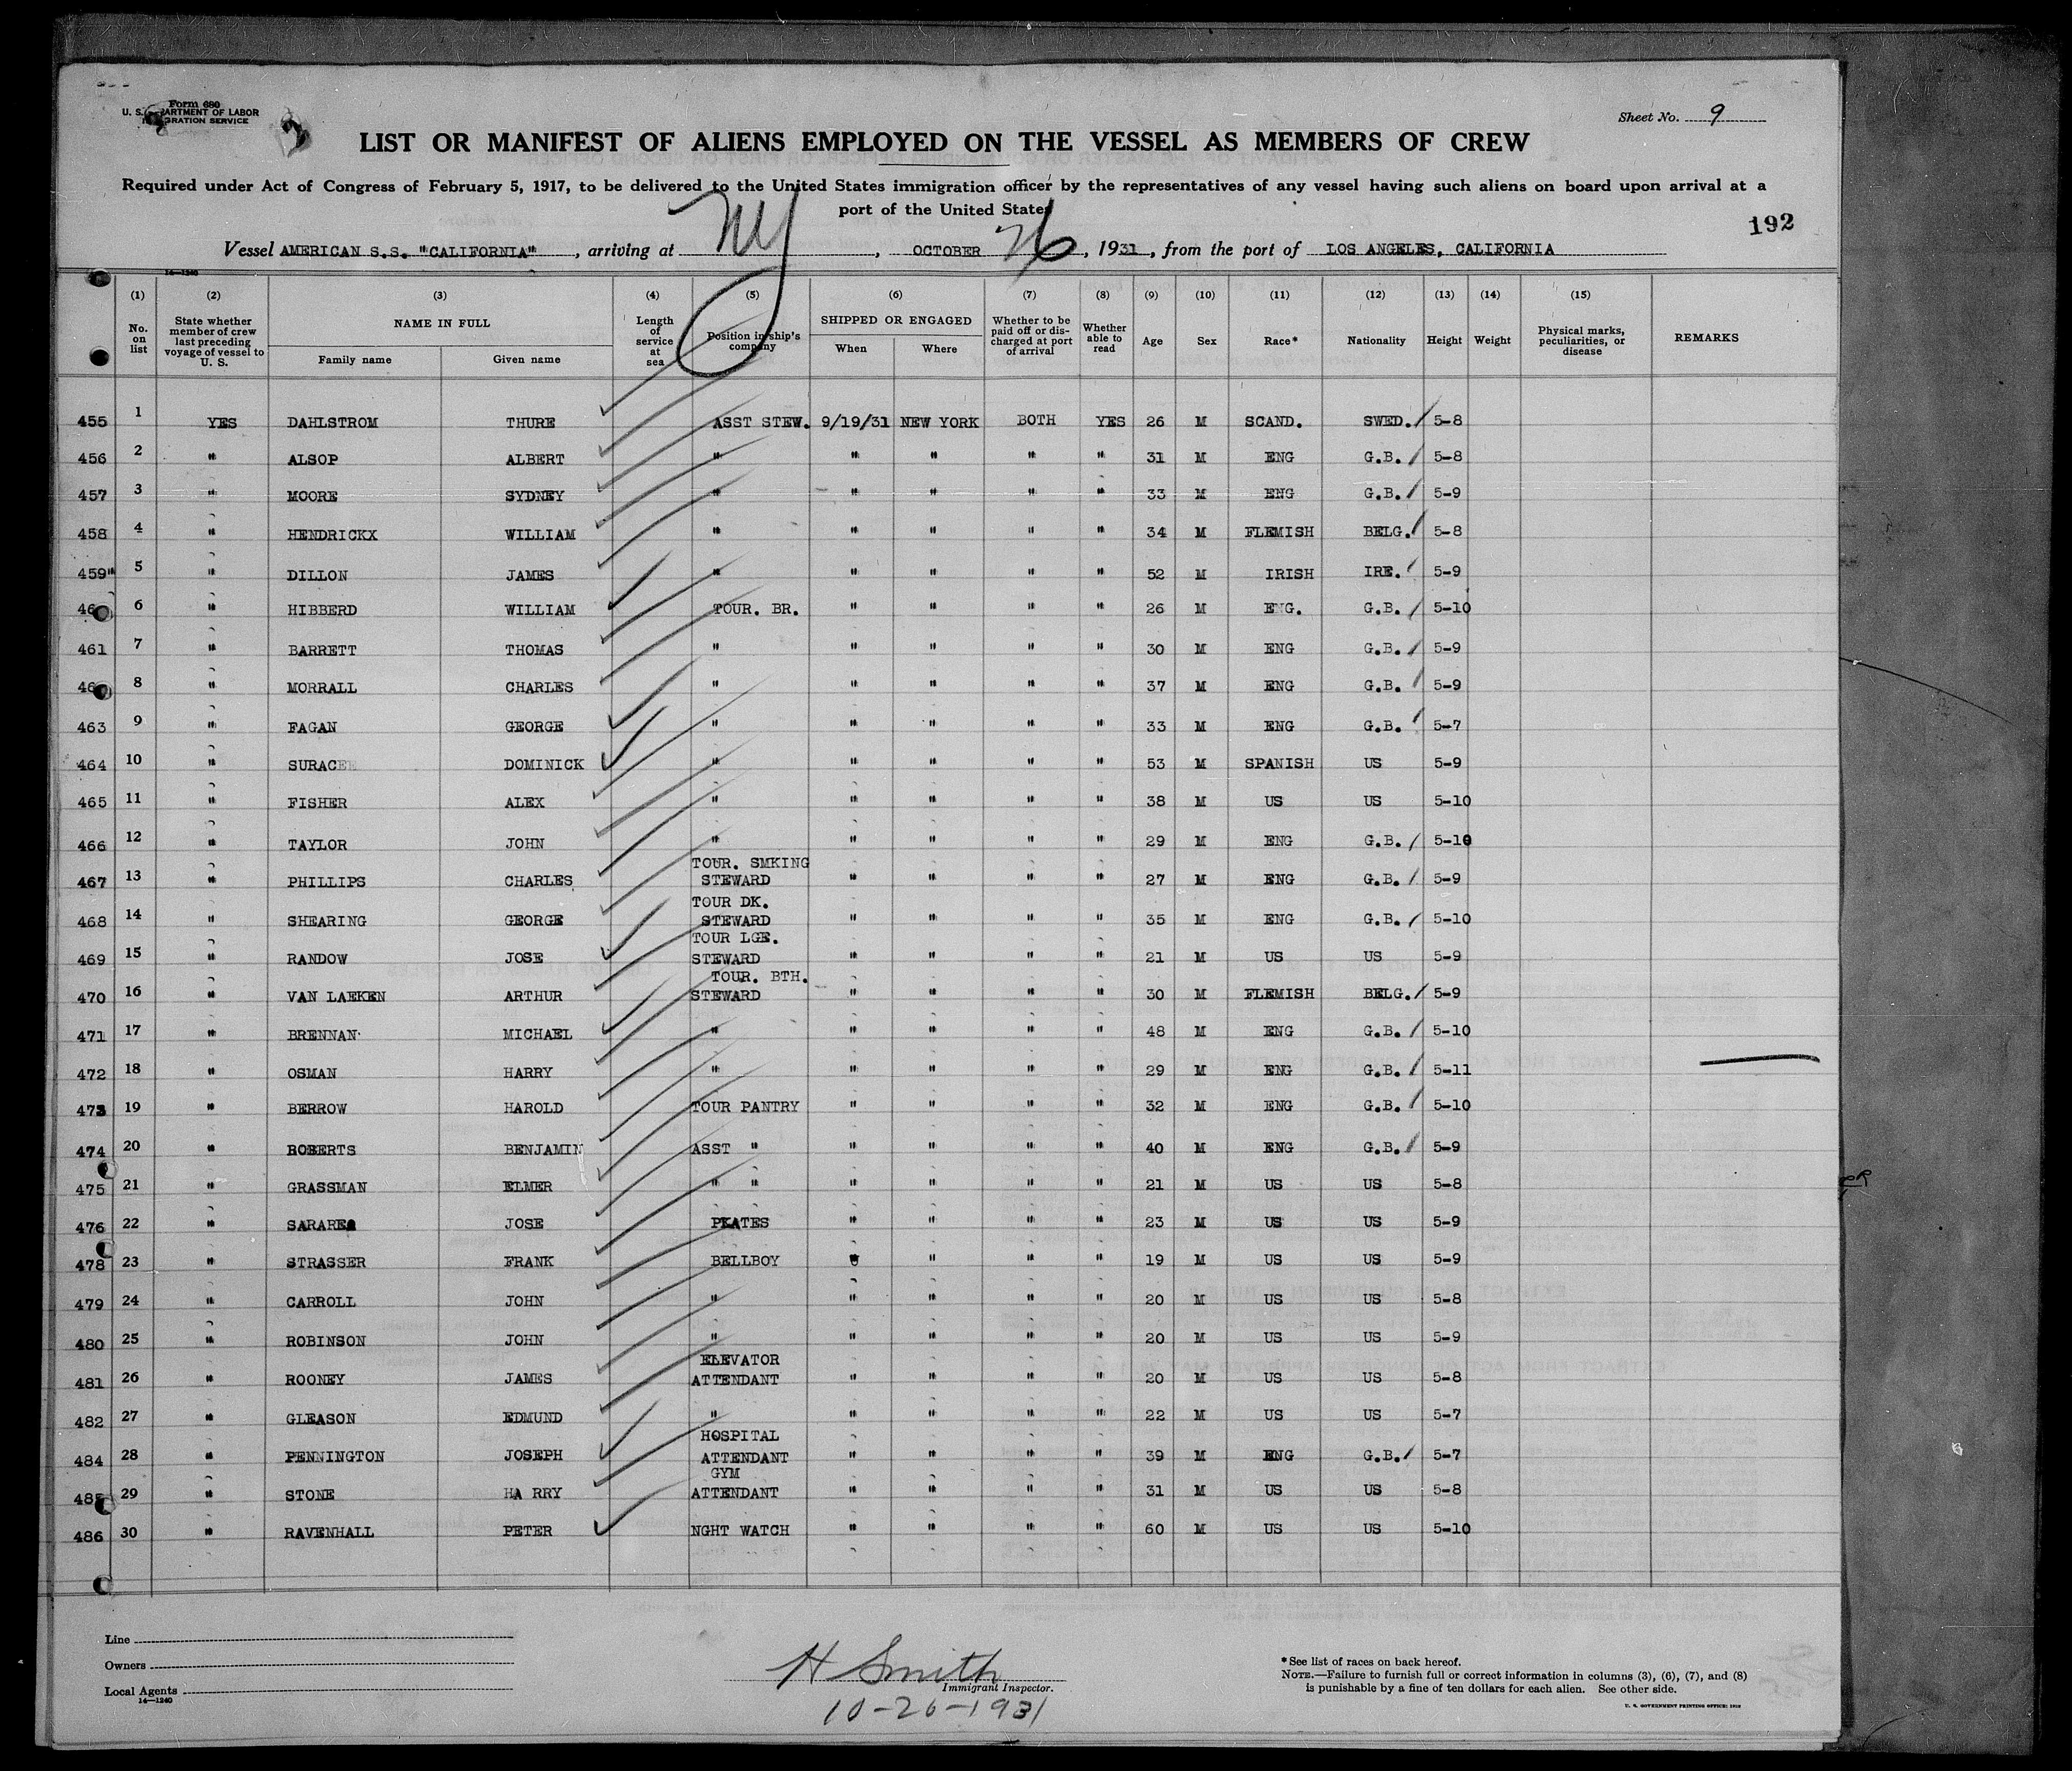 Form 680
U. S. DEPARTMENT OF LABOR
IMMIGRATION SERVICE
3
Sheet No. 9
LIST OR MANIFEST OF ALIENS EMPLOYED ON THE VESSEL AS MEMBERS OF CREW
Required under Act of Congress of February 5, 1917, to be delivered to the United States immigration officer by the representatives of any vessel having such aliens on board upon arrival at a
port of the United States
192
Vessel AMERICAN S.S. "CALIFORNIA", arriving at NY, OCTOBER 26, 1931, from the port of LOS ANGELES, CALIFORNIA
14—1240
(1) No. on list (2) State whether member of crew last preceding voyage of vessel to U. S. (3) NAME IN FULL Family name Given name (4) Length of service at sea (5) Position in ship's company (6) SHIPPED OR ENGAGED When Where (7) Whether to be paid off or discharged at port of arrival (8) Whether able to read (9) Age (10) Sex (11) Race* (12) Nationality (13) Height (14) Weight (15) Physical marks, peculiarities, or disease REMARKS
455 1 YES DAHLSTROM THURE ASST STEW. 9/19/31 NEW YORK BOTH YES 26 M SCAND. SWED. 5-8
456 2 " ALSOP ALBERT " " " " " 31 M ENG G.B. 5-8
457 3 " MOORE SYDNEY " " " " " 33 M ENG G.B. 5-9
458 4 " HENDRICKX WILLIAM " " " " " 34 M FLEMISH BELG. 5-8
459" 5 " DILLON JAMES " " " " " 52 M IRISH IRE. 5-9
46 6 " HIBBERD WILLIAM TOUR. BR. " " " " 26 M ENG. G.B. 5-10
461 7 " BARRETT THOMAS " " " " " 30 M ENG G.B. 5-9
46 8 " MORRALL CHARLES " " " " " 37 M ENG G.B. 5-9
463 9 " FAGAN GEORGE " " " " " 33 M ENG G.B. 5-7
464 10 " SURACEE DOMINICK " " " " " 53 M SPANISH US 5-9
465 11 " FISHER ALEX " " " " " 38 M US US 5-10
466 12 " TAYLOR JOHN " " " " " 29 M ENG G.B. 5-10
467 13 " PHILLIPS CHARLES TOUR. SMKING STEWARD " " " " 27 M ENG G.B. 5-9
468 14 " SHEARING GEORGE TOUR DK. STEWARD " " " " 35 M ENG G.B. 5-10
469 15 " RANDOW JOSE TOUR LGE. STEWARD " " " " 21 M US US 5-9
470 16 " VAN LAEKEN ARTHUR TOUR. BTH. STEWARD " " " " 30 M FLEMISH BELG. 5-9
471 17 " BRENNAN MICHAEL " " " " " 48 M ENG G.B. 5-10
472 18 " OSMAN HARRY " " " " " 29 M ENG G.B. 5-11
473 19 " BERROW HAROLD TOUR PANTRY " " " " 32 M ENG G.B. 5-10
474 20 " ROBERTS BENJAMIN ASST " " " " " 40 M ENG G.B. 5-9
475 21 " GRASSMAN ELMER " " " " " " 21 M US US 5-8
476 22 " JOSE " " " " 23 M US US 5-9
478 23 " STRASSER FRANK BELLBOY " " " " 19 M US US 5-9
479 24 " CARROLL JOHN " " " " " 20 M US US 5-8
480 25 " ROBINSON JOHN " " " " " 20 M US US 5-9
481 26 " ROONEY JAMES ELEVATOR ATTENDANT " " " " 20 M US US 5-8
482 27 " GLEASON EDMUND " " " " " 22 M US US 5-7
484 28 " PENNINGTON JOSEPH HOSPITAL ATTENDANT " " " " 39 M ENG G.B. 5-7
485 29 " STONE HA RRY GYM ATTENDANT " " " " 31 M US US 5-8
486 30 " RAVENHALL PETER NGHT WATCH " " " " 60 M US US 5-10
Line
Owners
Local Agents
14—1240
H Smith
Immigrant Inspector.
10-26-1931
*See list of races on back hereof.
NOTE.—Failure to furnish full or correct information in columns (3), (6), (7), and (8)
is punishable by a fine of ten dollars for each alien. See other side.
U. S. GOVERNMENT PRINTING OFFICE: 1928